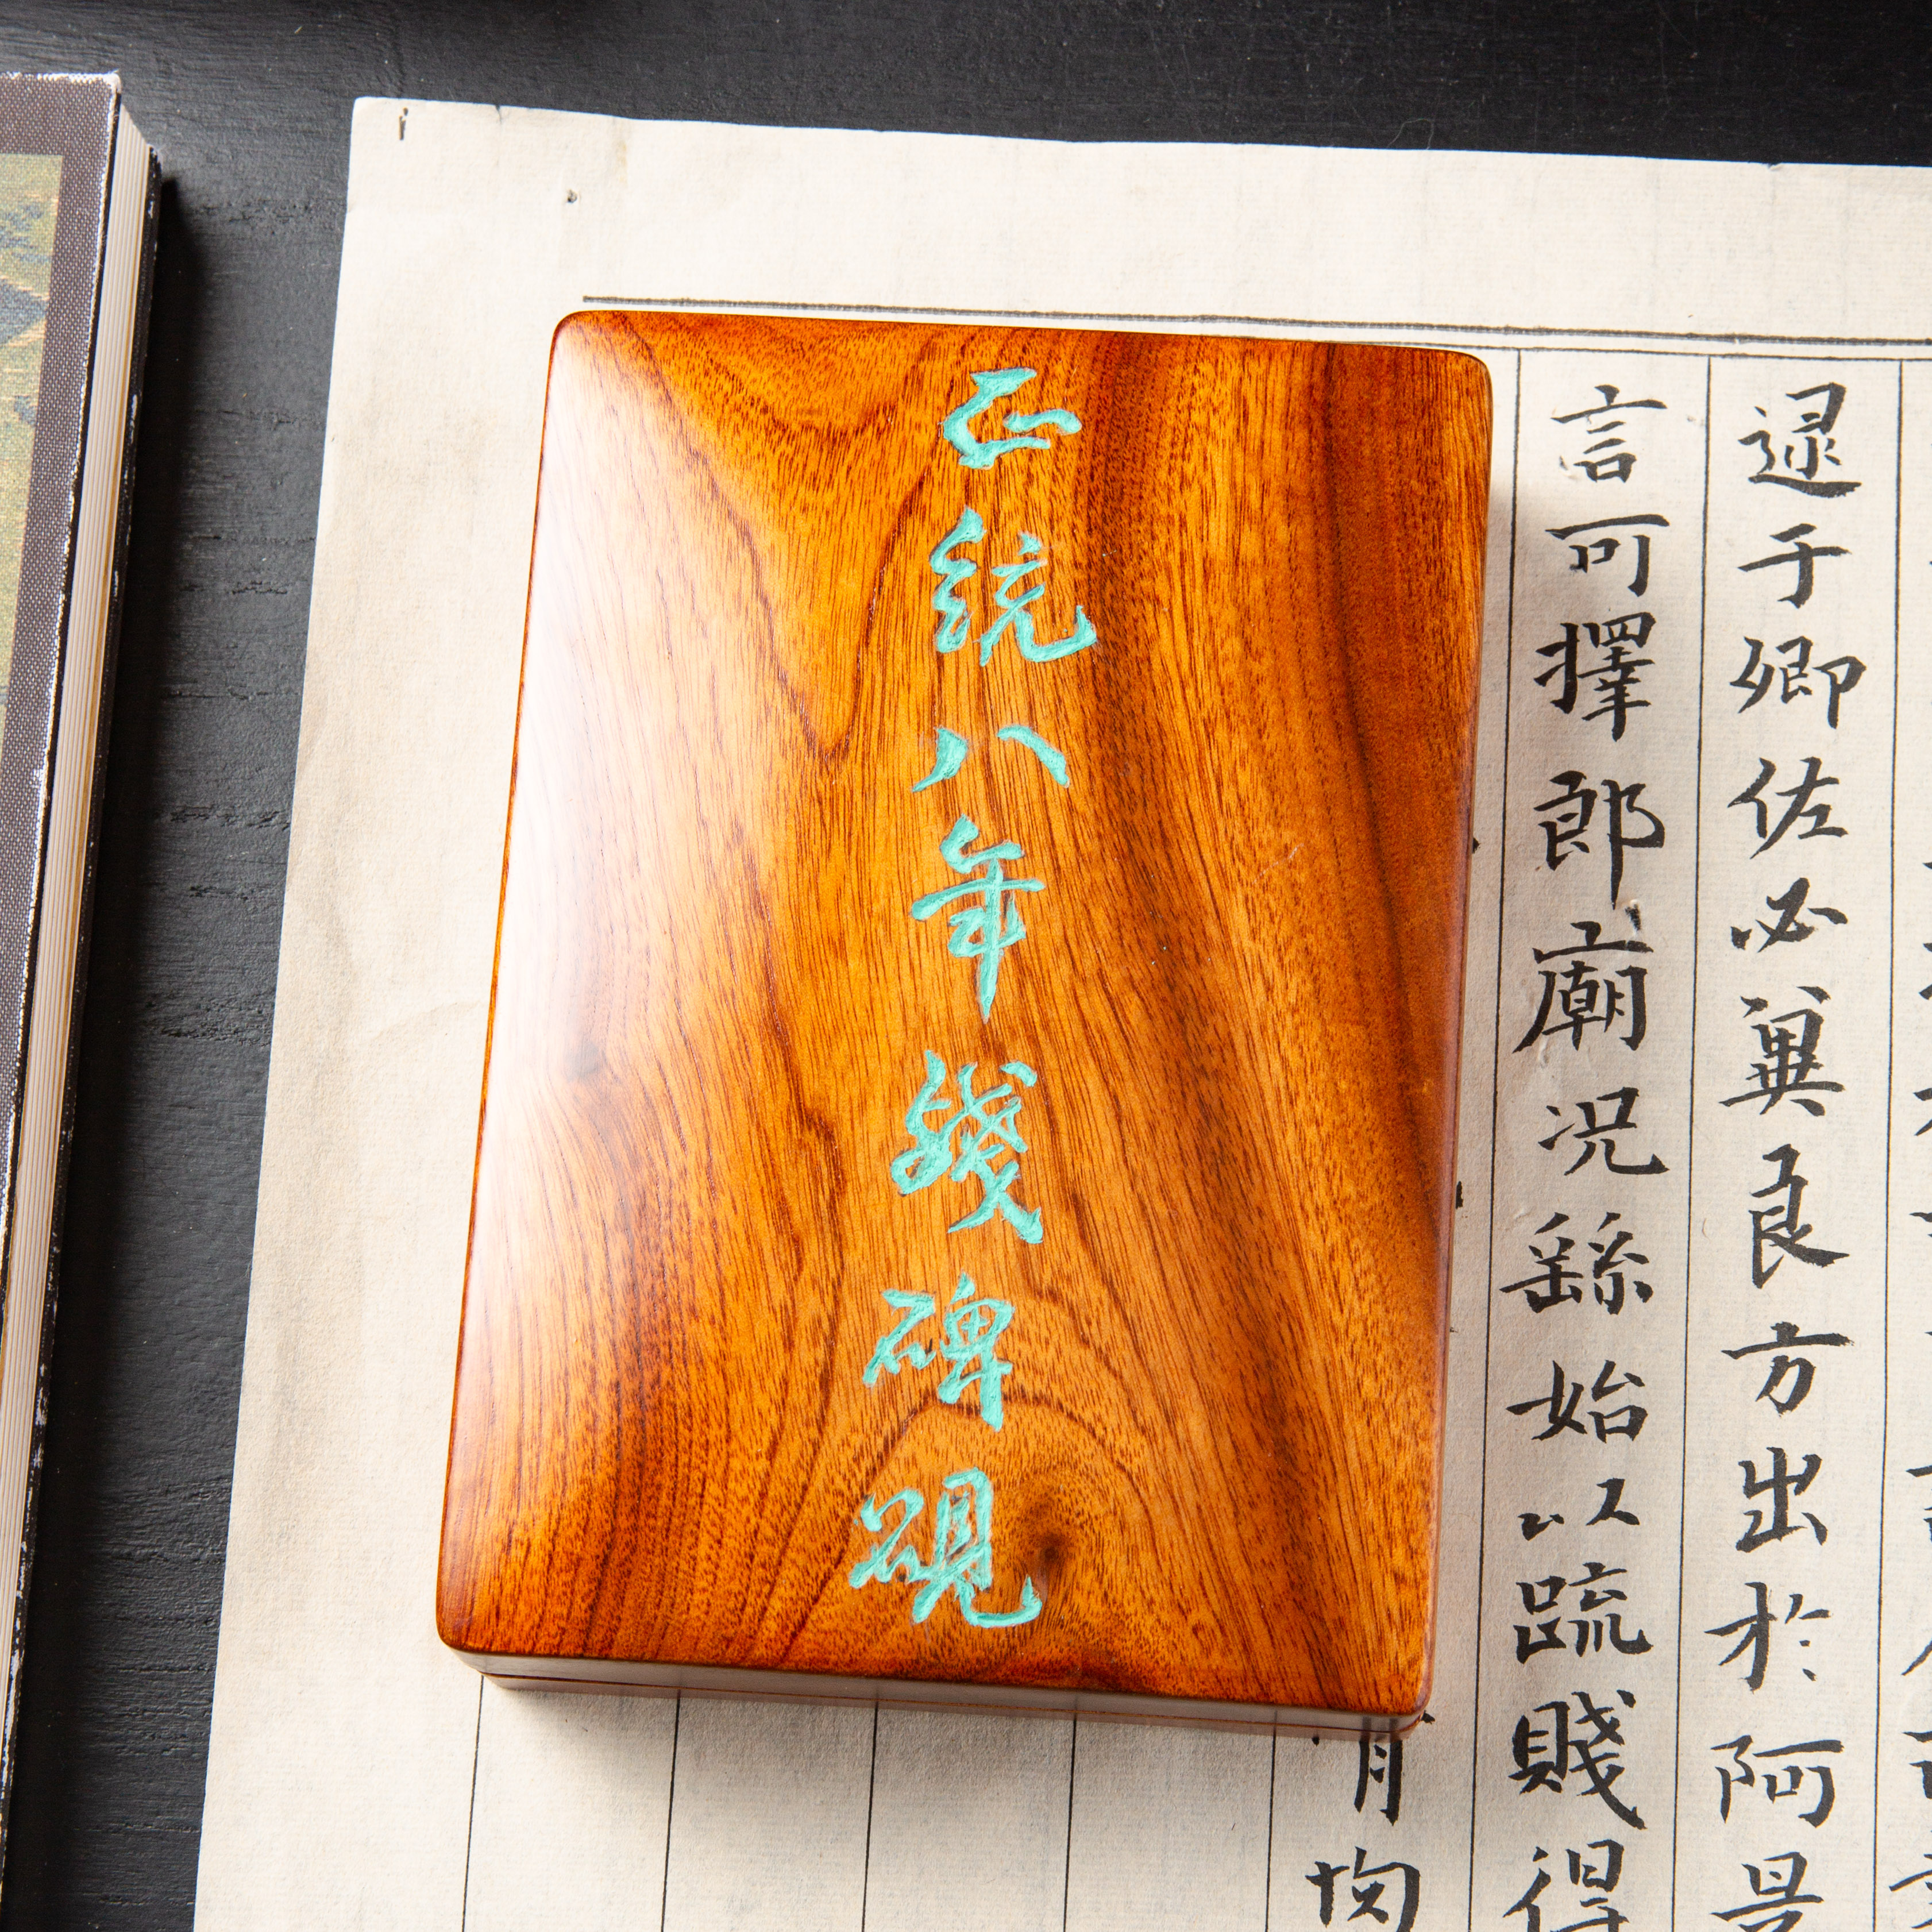 正統八年殘碑硯
逮于卿佐必良方出於阿
言可擇郎廟況繇始以疏賤得